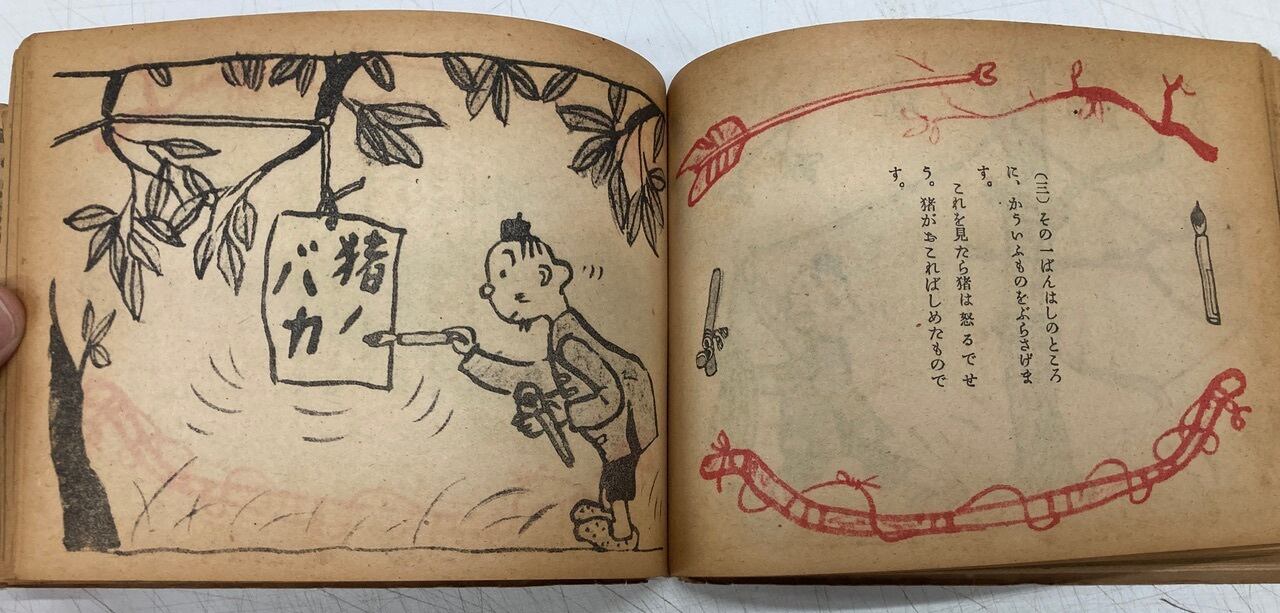 猪ノ
バカ
(三)その一ばんはしのところ
に、かういふものをぶらさげま
す。
これを見たら猪は怒るでせ
う。猪がおこればしめたもので
す。